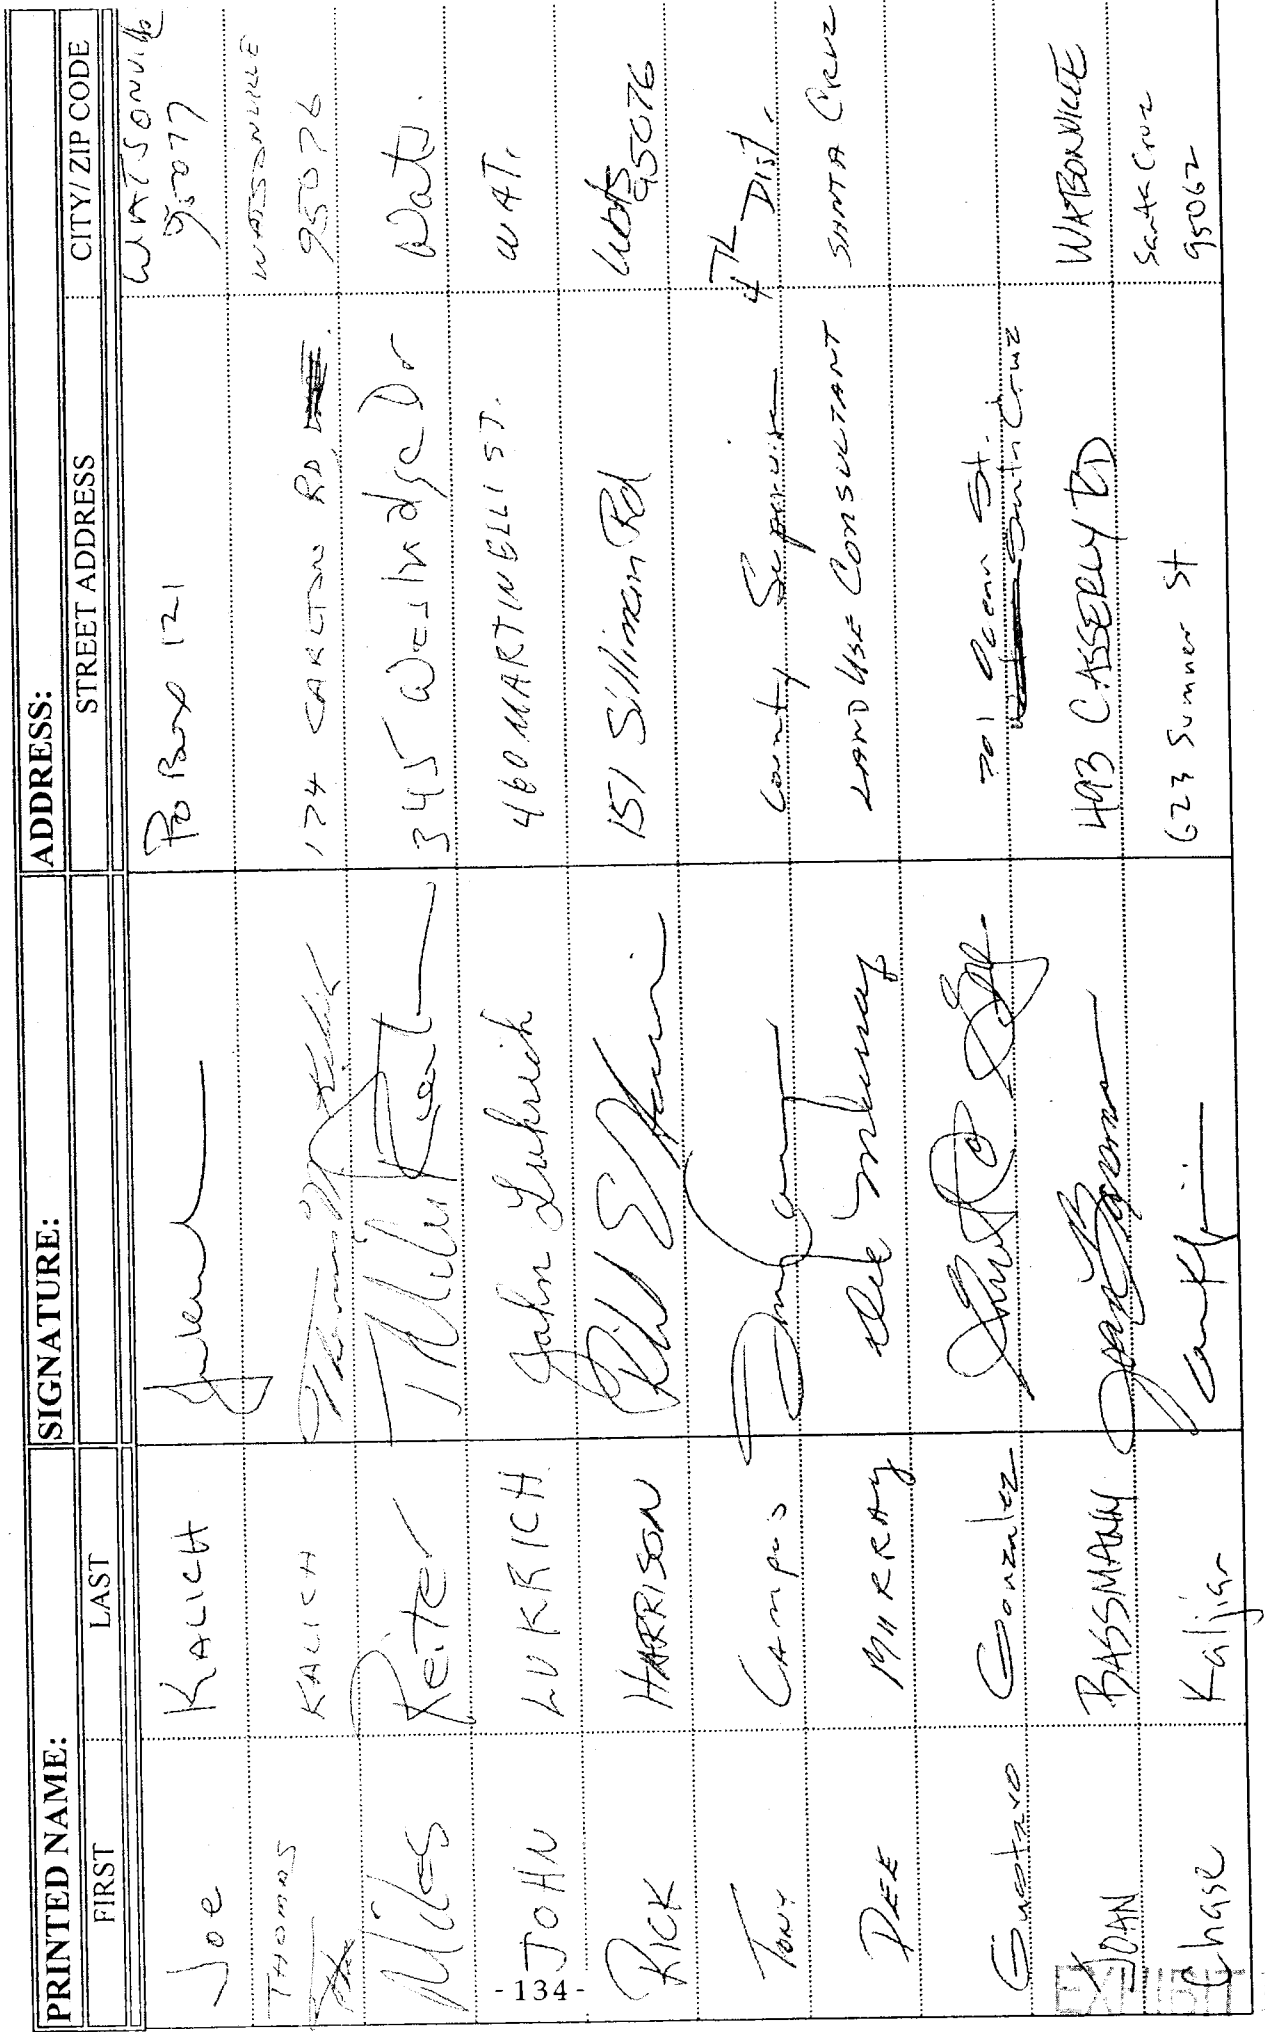 PRINTED NAME: SIGNATURE: ADDRESS:
FIRST LAST STREET ADDRESS CITY/ ZIP CODE
Joe KALICH PO Box 121 WATSONVILLE
95077
THOMAS KALICH Thomas Kalich 174 CARLTON RD. WATSONVILLE
95076
Miles Reiter Miles Reiter 345 Westridge Dr Wats.
JOHN LUKRICH John Lukrich 460 MARTINELLI ST. WAT.
RICK HARRISON 151 Silliman Rd Wats
95076
TONY CAMPOS County Supervisor 4th Dist.
DEE MURRAY Dee Murray LAND USE CONSULTANT SANTA CRUZ
Gustavo Gonzalez 701 Ocean St.
Santa Cruz
JOAN BASSMANN 493 CASSERLY RD WATSONVILLE
Chase Kaljian 623 Sumner St Santa Cruz
95062
-134-
EXHIBIT